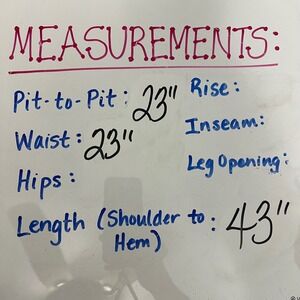 MEASUREMENTS:
Pit-to-Pit: 23"
Rise:
Waist: 23"
Inseam:
Hips:
Leg Opening:
Length (Shoulder to Hem): 43"